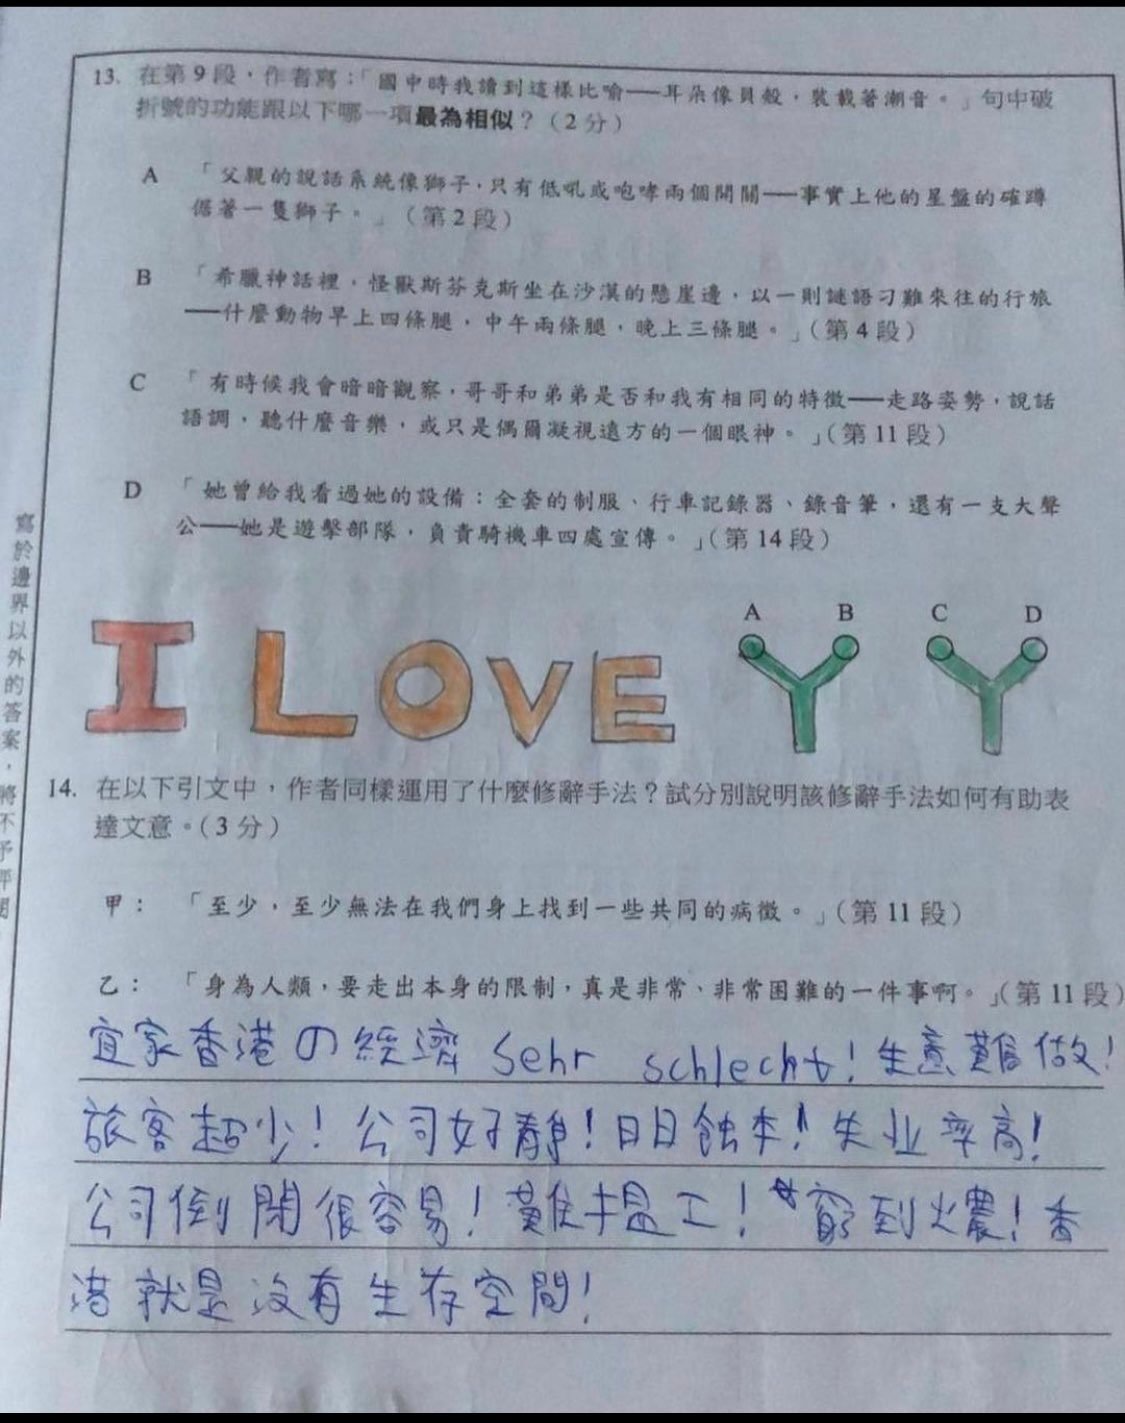 13. 在第9段，作者寫：「國中時我讀到這樣比喻——耳朵像貝殼，裝載著潮音。」句中破
折號的功能跟以下哪一項最為相似？（2分）
A 「父親的說話系統像獅子，只有低吼或咆哮兩個開關——事實上他的星盤的確蹲
倨著一隻獅子。」（第2段）
B 「希臘神話裡，怪獸斯芬克斯坐在沙漠的懸崖邊，以一則謎語刁難來往的行旅
——什麼動物早上四條腿，中午兩條腿，晚上三條腿。」（第4段）
C 「有時候我會暗暗觀察，哥哥和弟弟是否和我有相同的特徵——走路姿勢，說話
語調，聽什麼音樂，或只是偶爾凝視遠方的一個眼神。」（第11段）
D 「她曾給我看過她的設備：全套的制服、行車記錄器、錄音筆，還有一支大聲
公——她是遊擊部隊，負責騎機車四處宣傳。」（第14段）
A B C D
I LOVE Y Y
14. 在以下引文中，作者同樣運用了什麼修辭手法？試分別說明該修辭手法如何有助表
達文意。（3分）
甲：「至少，至少無法在我們身上找到一些共同的病徵。」（第11段）
乙：「身為人類，要走出本身的限制，真是非常、非常困難的一件事啊。」（第11段）
宜家香港の經濟 sehr schlecht！生意難做！
旅客超少！公司好靜！日日蝕本！失业率高！
公司倒閉很容易！難搵工！窮到燶！香
港就是沒有生存空間！
寫於邊界以外的答案，將不予評閱